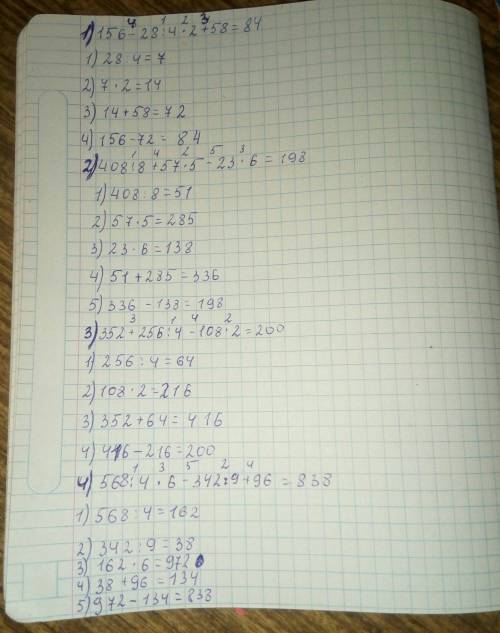 4 1 2 3
1) 156 - 28 : 4 · 2 + 58 = 84
1) 28 : 4 = 7
2) 7 · 2 = 14
3) 14 + 58 = 72
4) 156 - 72 = 84
1 4 2 5 3
2) 408 : 8 + 57 · 5 - 23 · 6 = 198
1) 408 : 8 = 51
2) 57 · 5 = 285
3) 23 · 6 = 138
4) 51 + 285 = 336
5) 336 - 138 = 198
3 1 4 2
3) 352 + 256 : 4 - 108 · 2 = 200
1) 256 : 4 = 64
2) 108 · 2 = 216
3) 352 + 64 = 416
4) 416 - 216 = 200
1 3 5 2 4
4) 568 : 4 · 6 - 342 : 9 + 96 = 838
1) 568 : 4 = 162
2) 342 : 9 = 38
3) 162 · 6 = 972
4) 38 + 96 = 134
5) 972 - 134 = 838